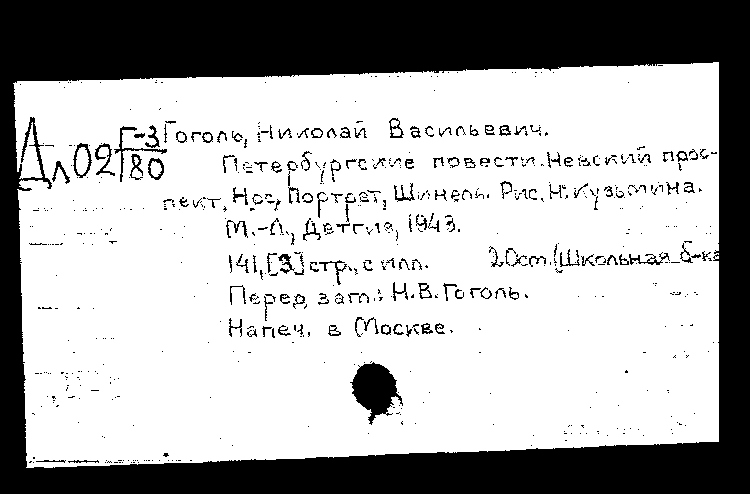 Дл 02 Г-3/80
Гоголь, Николай Васильевич.
Петербургские повести. Невский прос-
пект, Нос, Портрет, Шинель. Рис. Н. Кузьмина.
М.-Л., Детгиз, 1943.
141, [3] стр., с илл. 20 ст. (Школьная б-ка
Перед загл.: Н.В. Гоголь.
Напеч. в Москве.